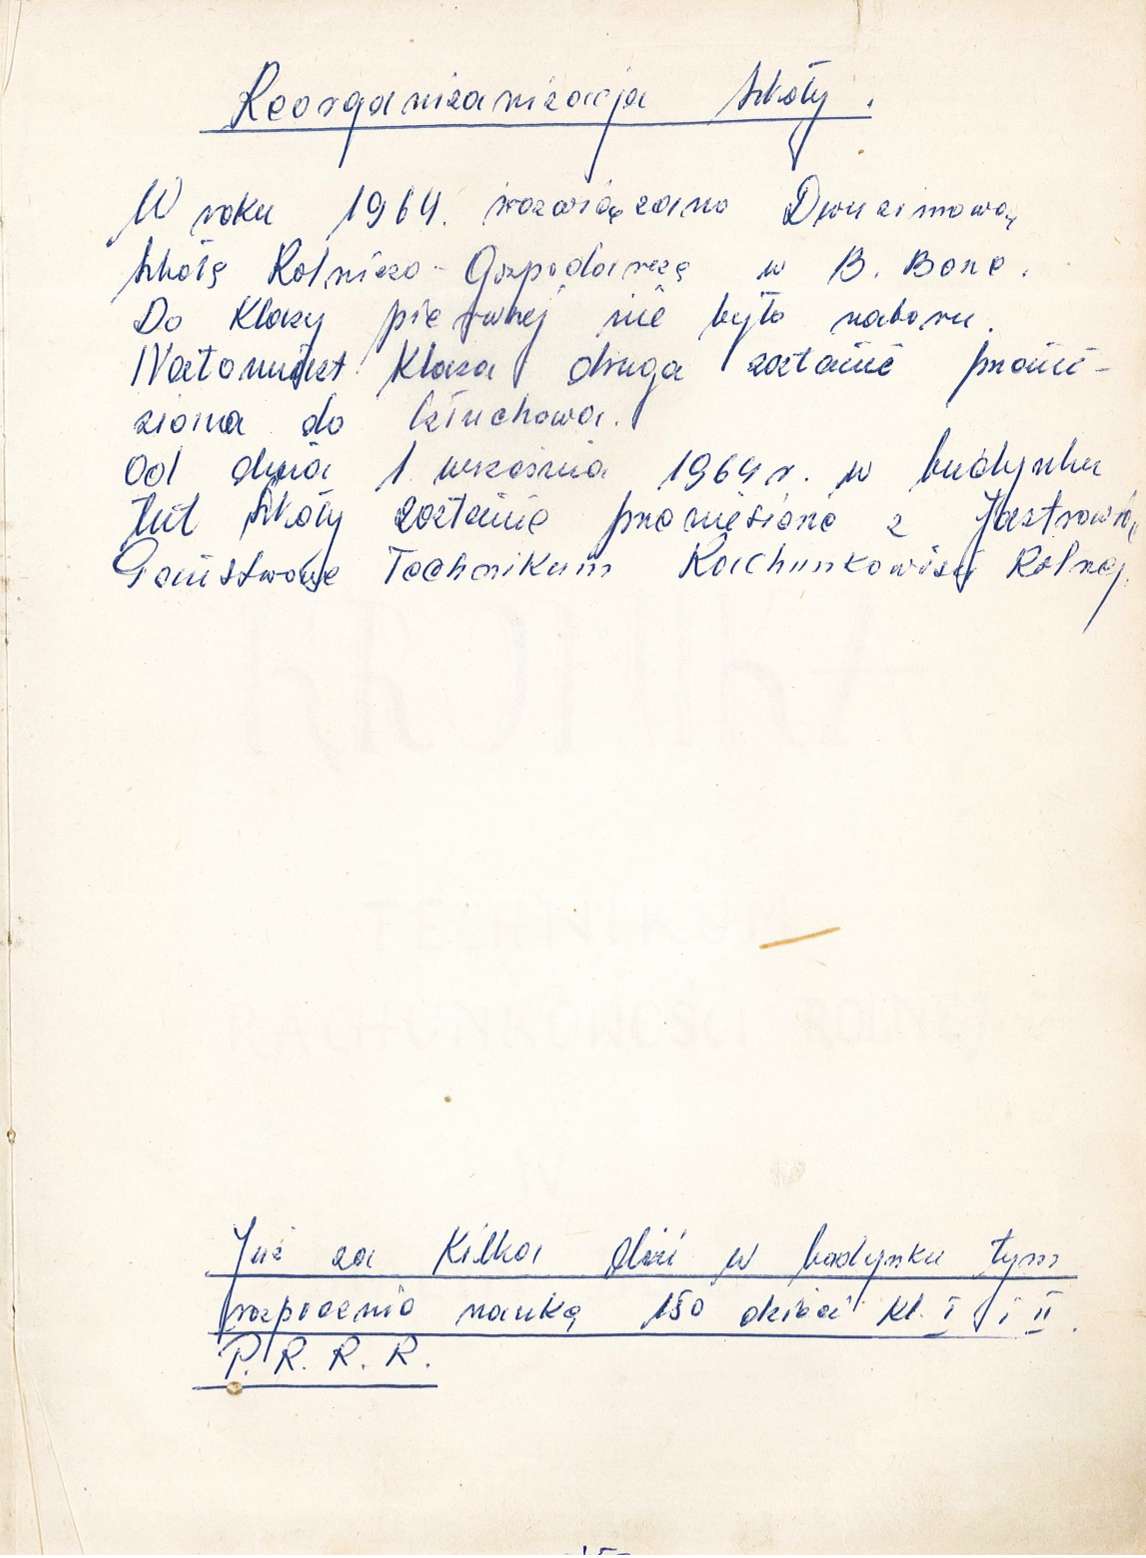 Reorganizanizacja Szkoły.
W roku 1964. rozwiązano Dwuzimową
Szkołę Rolniczo-Gospodarczą w B. Bone.
Do Klasy pierwszej nie było naboru.
Natomiast Klasa druga zostanie przenie-
ziona do Człuchowa.
Od dnia 1. września 1964 r. w budynku
tut Szkoły zostanie przeniesione z Jastrowia
Państwowe Technikum Rachunkowości Rolnej.
KRONIKA
TECHNIKUM
RACHUNKOWOŚCI ROLNEJ
W
Już za Kilka dni w budynku tym
rozpocznie naukę 150 dzieci Kl. I i II.
P. R. R. R.